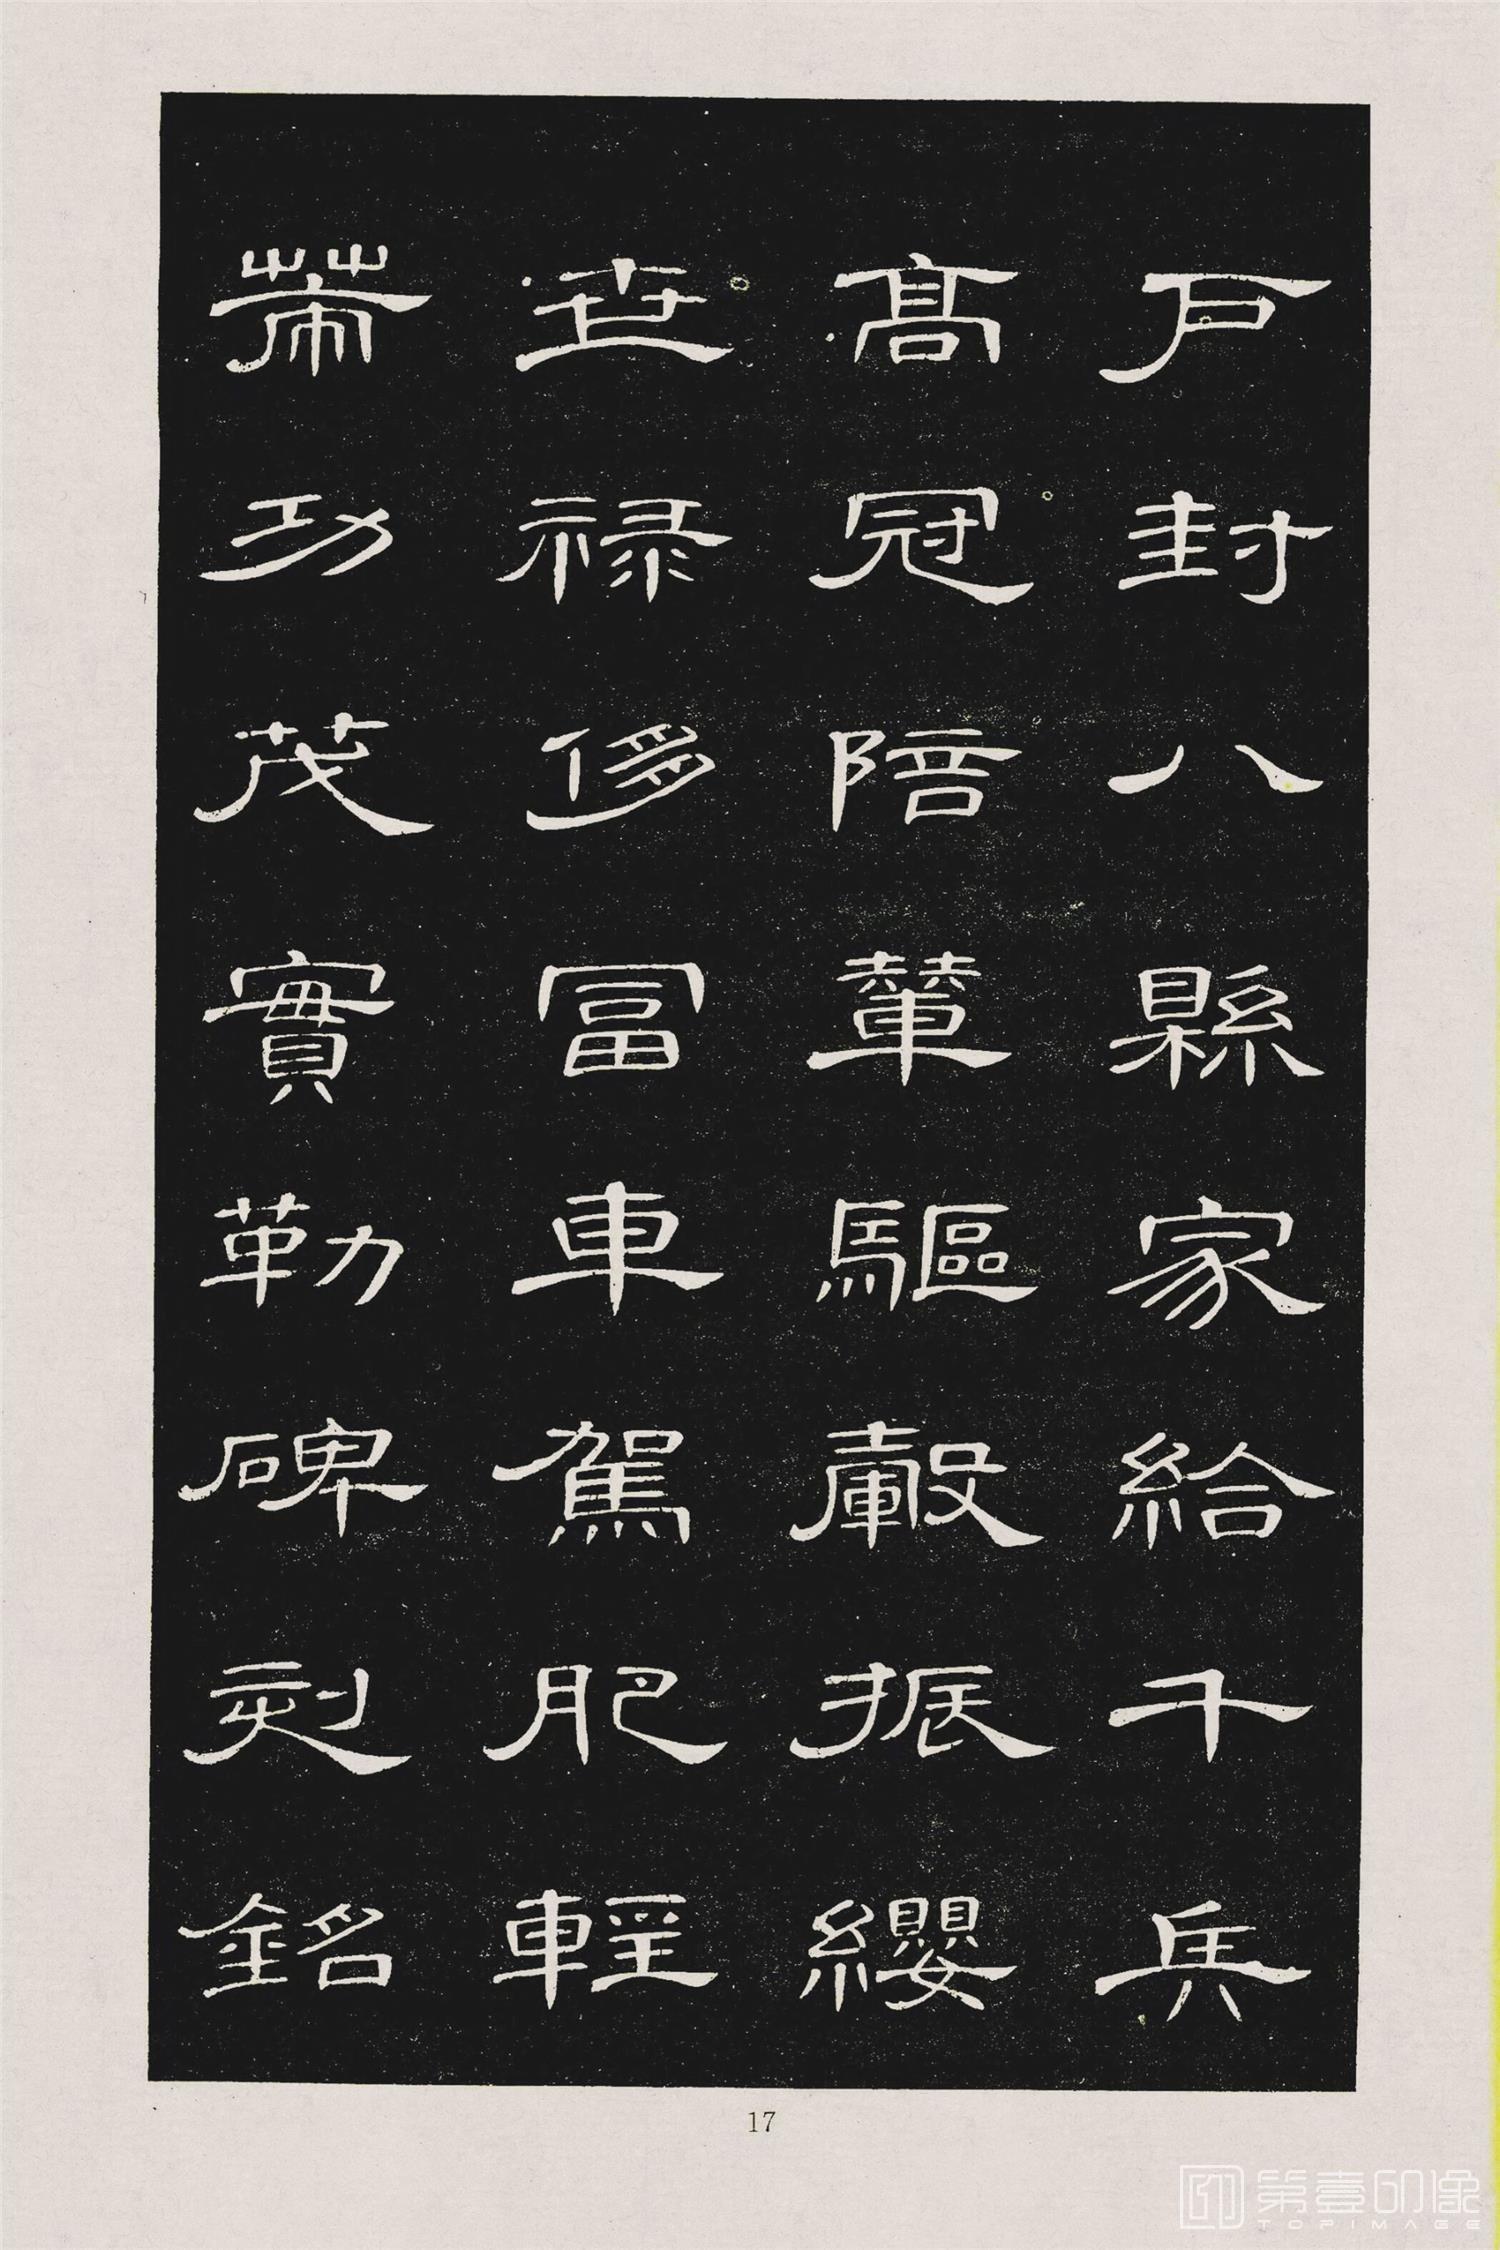 戶封八縣家給千兵
髙冠陪輦驅轂振纓
世祿侈冨車駕肥輕
策功茂實勒碑刻銘
17
第壹印像
TOPIMAGE